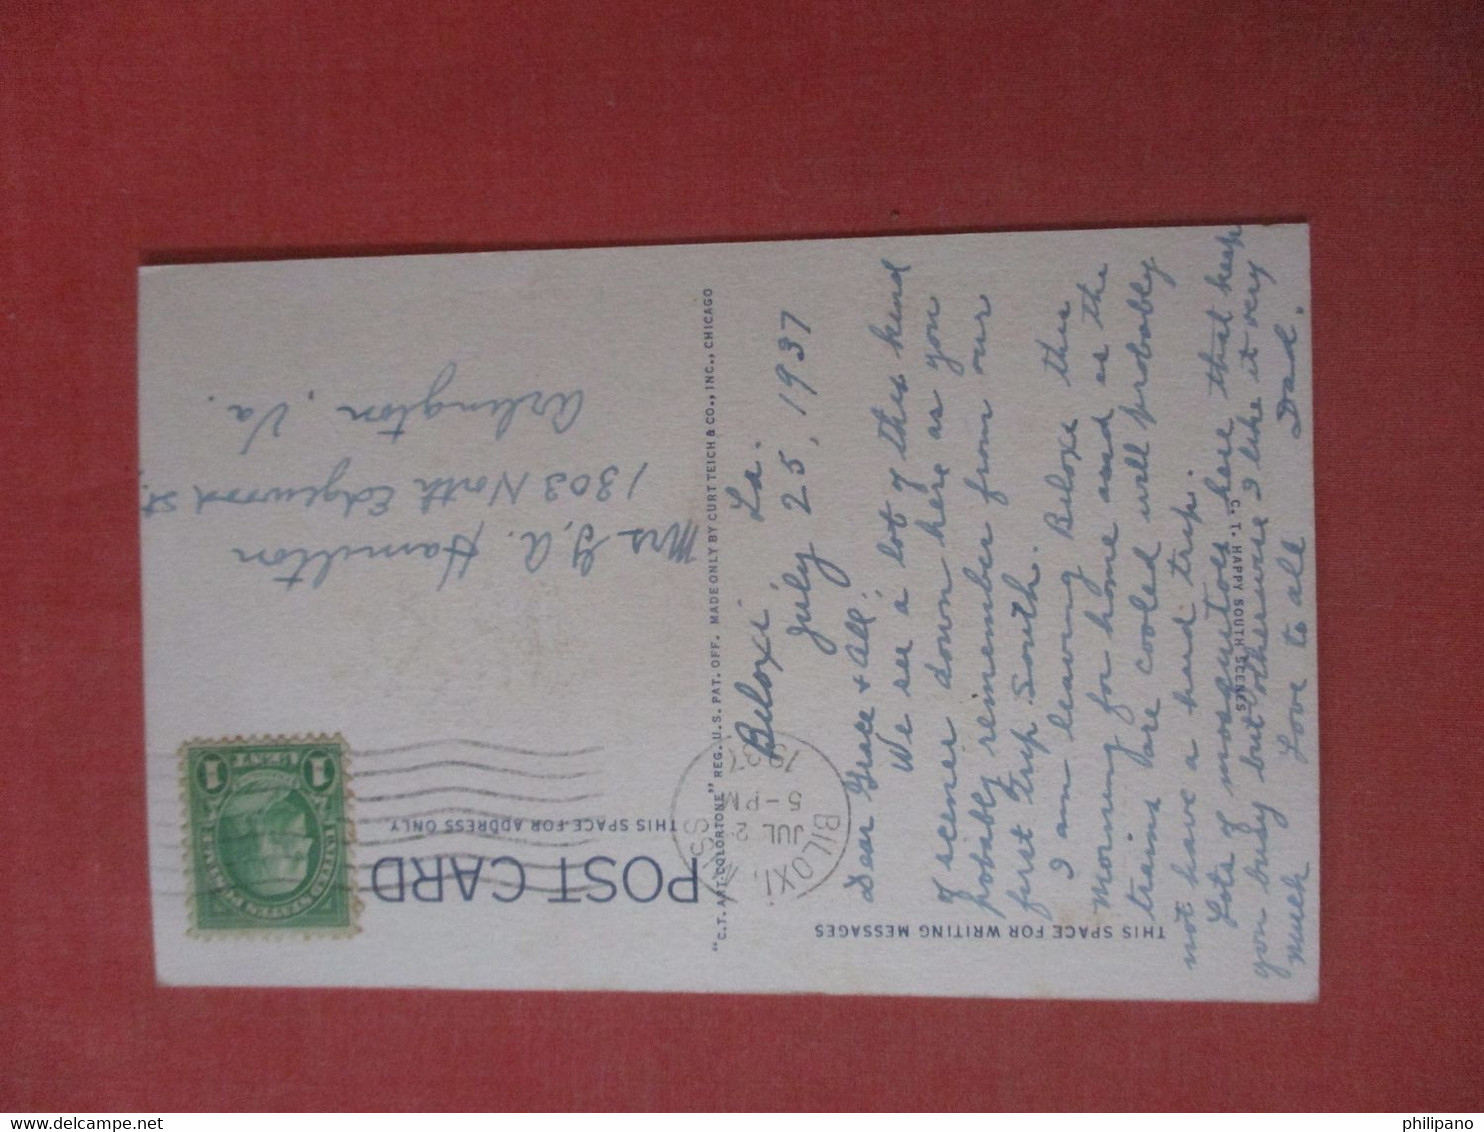 Biloxi, La.
July 25, 1937
Dear Grace & All:
We see a lot of this kind
of scenes down here as you
probably remember from our
first trip South.
I am leaving Biloxi this
morning for home and as the
trains are cooled will probably
not have a hard trip.
Lots of mosquitoes here that keep
you busy but otherwise I like it very
much Love to all Dad.
THIS SPACE FOR WRITING MESSAGES
C. T. HAPPY SOUTH SCENES
"C.T. ART-COLORTONE" REG. U.S. PAT. OFF. MADE ONLY BY CURT TEICH & CO., INC., CHICAGO
POST CARD
THIS SPACE FOR ADDRESS ONLY
BILOXI, MISS
JUL 2
5-PM
1937
1 CENT 1
Mrs G. A. Hamilton
1303 North Edgewood St.
Arlington, Va.
philipano
delcampe.net